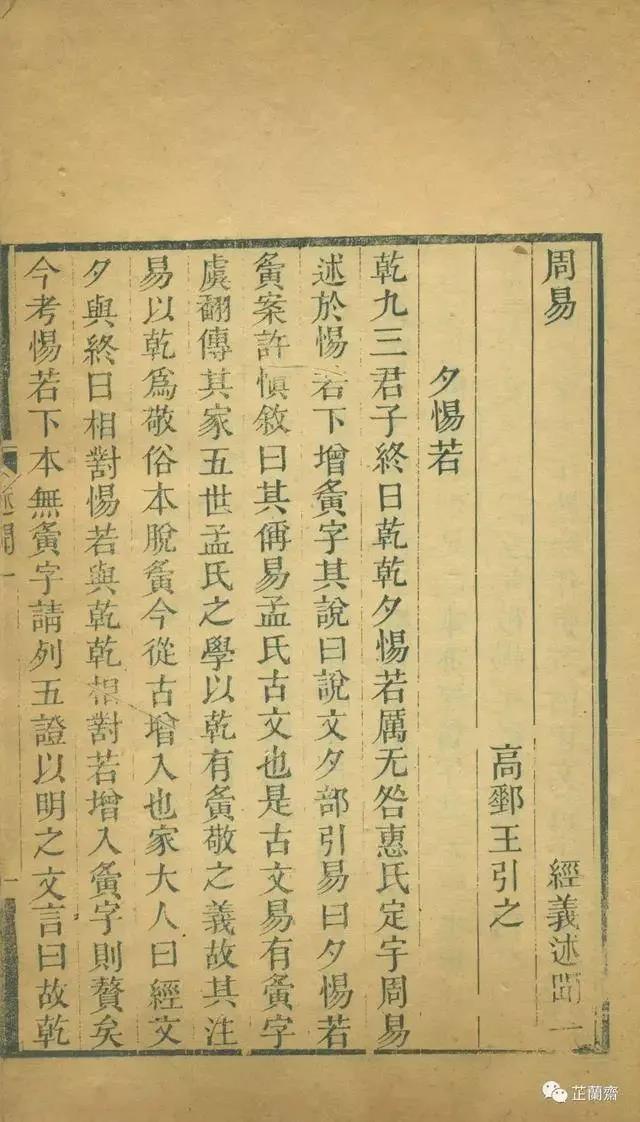 周易 經義述聞一
高郵王引之
夕惕若
乾九三君子終日乾乾夕惕若厲无咎惠氏定宇周易
述於惕若下增夤字其說曰說文夕部引易曰夕惕若
夤案許慎敘曰其偁易孟氏古文也是古文易有夤字
虞翻傳其家五世孟氏之學以乾有夤敬之義故其注
易以乾爲敬俗本脫夤今從古增入也家大人曰經文
夕與終日相對惕若與乾乾相對若增入夤字則贅矣
今考惕若下本無夤字請列五證以明之文言曰故乾
芷蘭齋